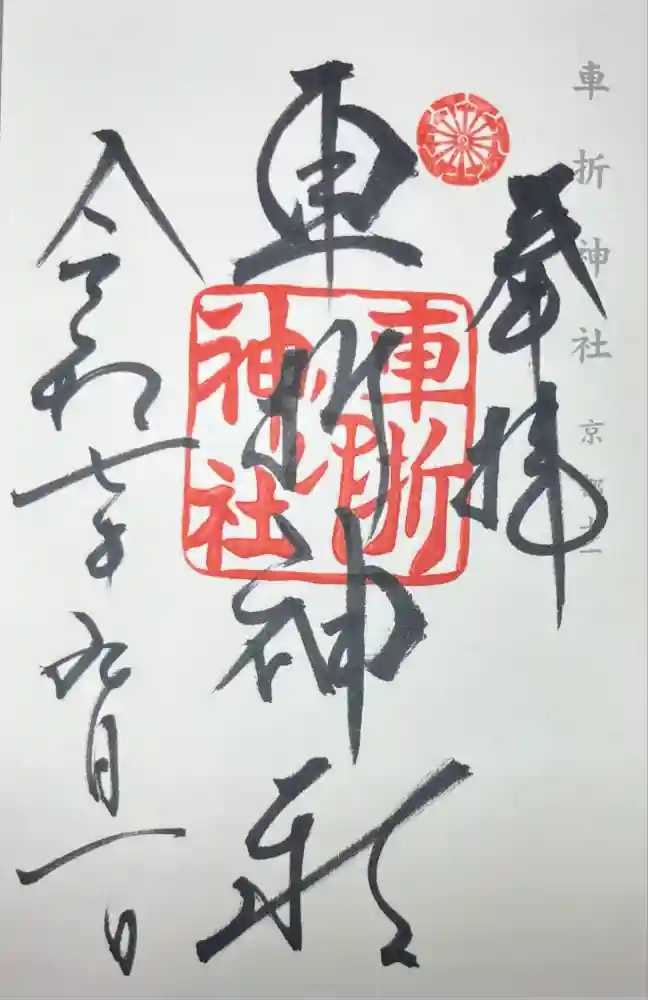 車折神社 京都
奉拝
車折神社
車折
之印
神社
令和七年九月一日